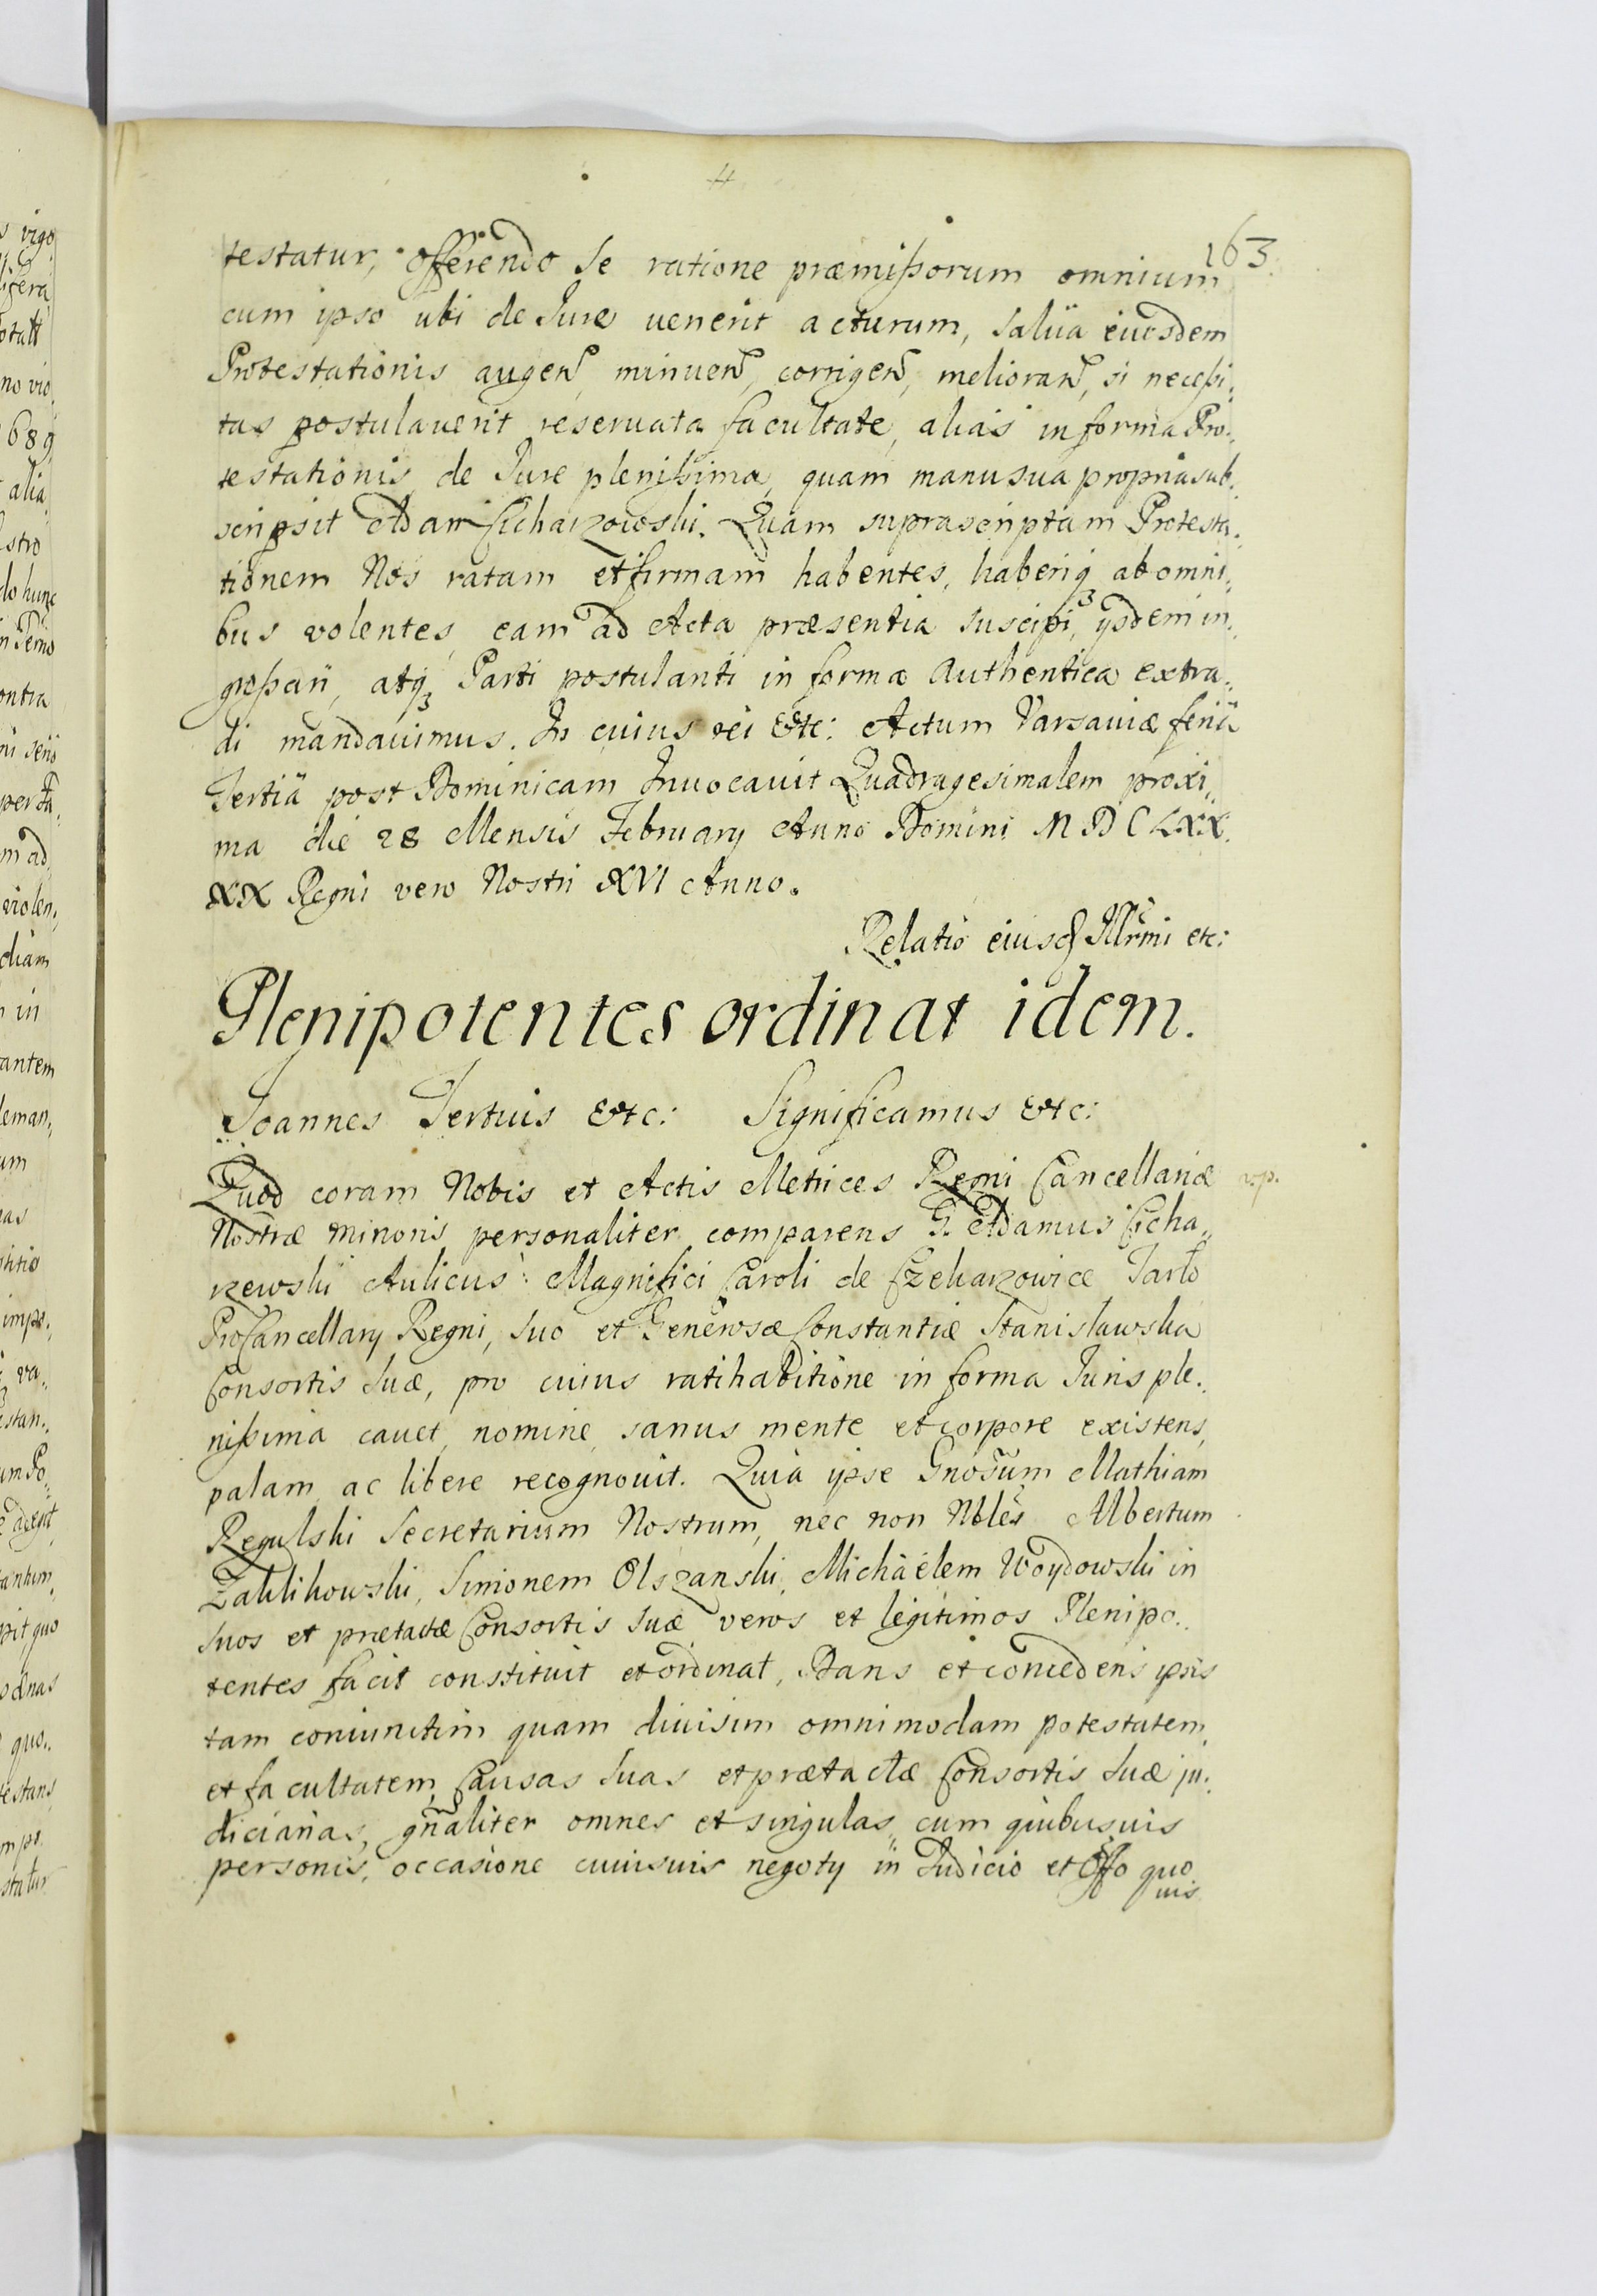 163.
testatur, offerendo Se ratione præmißorum omnium
cum ipso ubi de Jure uenerit acturum, salua eiusdem
Protestationis augen, minuen, corrigen, melioran, si neceßi,,
tas postulauerit reseruata facultate, alias in forma Pro,,
testationis de Jure plenißima, quam manu sua propria sub,,
scripsit Adam Cicharzowski. Quam suprascriptam Protesta,,
tionem Nos ratam et firmam habentes, haberiq3 ab omni,,
bus volentes, eam ad Acta præsentia suscipi, ysdem in,,
großari, atq3 Parti postulanti in forma Authentica extra,,
di mandauimus. In cuius rei Etc: Actum Varsauiæ feria
Tertia post Dominicam Inuocauit Quadragesimalem proxi,,
ma die 28 Mensis February Anno Domini M D C LXX.
XX Regni vero Nostri XVI Anno.
Relatio eiusd Illrmi etc:
Plenipotentes ordinat idem.
Joannes Tertius Etc: Significamus Etc:
Quod coram Nobis et Actis Metrices Regni Cancellariæ
Nostræ Minoris personaliter comparens G. Adamus Cicha,,
rzewski Aulicus Magnifici Caroli de Czekarzowice Tarło
ProCancellary Regni, suo et Generosæ Constantiæ Stanisławska
Consortis Suæ, pro cuius ratihabitione in forma Juris ple,,
nißima cauet, nomine, sanus mente et corpore existens,
palam ac libere recognouit. Quia ipse Gnosum Mathiam
Regulski Secretarium Nostrum, nec non Nbles Albertum
Zablikowski, Simonem Olszanski, Michaelem Woydowski in
Suos et prætactæ Consortis Suæ veros et legitimos Plenipo,,
tentes facit constituit et ordinat, Dans et concedens ipsis
tam coniunctim quam diuisim omnimodam potestatem,
et facultatem, Causas Suas et prætactæ Consortis Suæ ju,,
diciarias, gnaliter omnes et singulas, cum quibusuis
personis, occasione cuiusuis negoty in Judicio et Offo quo
uis